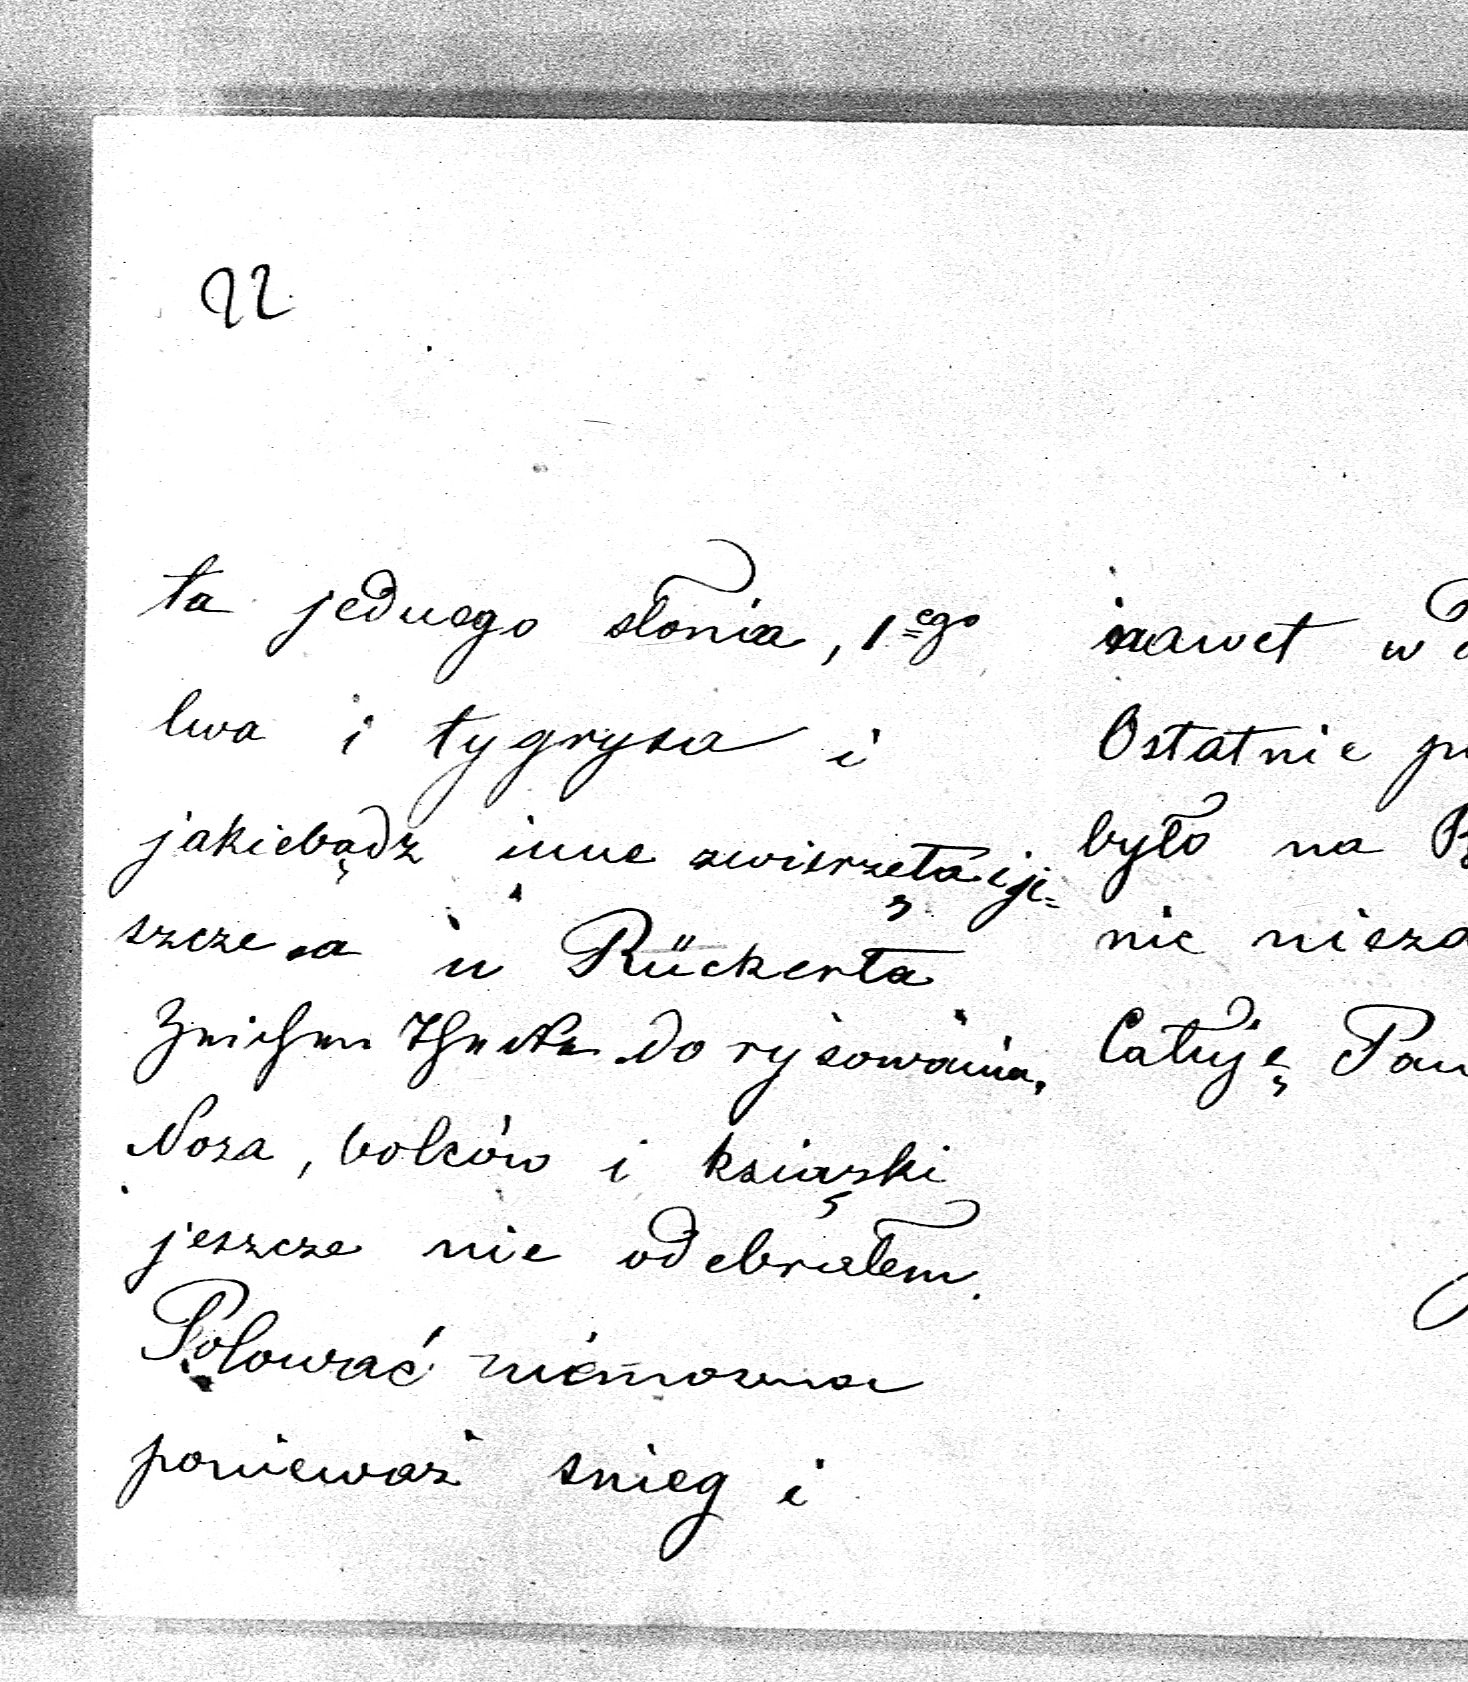 22
ta jednego słonia, 1ego
lwa i tygrysa i
jakiebądz inne zwierzęta i je=
szcze a u Rückerta
do rysowania.
Noża, bolców i ksiąski
jeszcze nie odebrałem.
Polować niemozna
ponieważ snieg i
nawet w
Ostatnie
było na
nic nieza
Całuję Pan